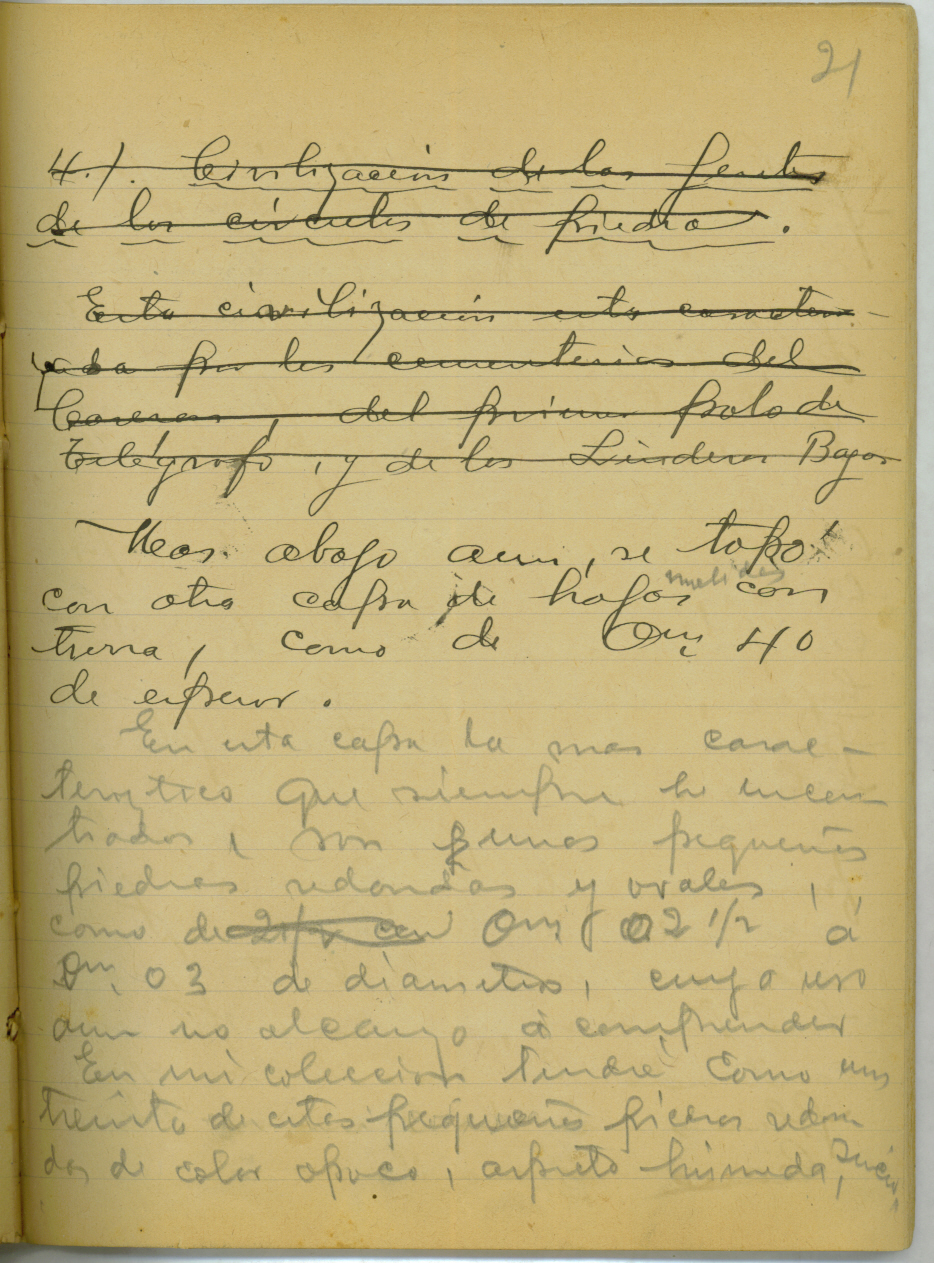 21
4.). Civilización de las gentes
de los círculos de piedra.
Esta civilización esta caracteri-
zada por los cementerios del
Caseras, del primer Palo de
Telégrafo, y de los Linderos Bajos
Mas abajo aun, se topó
con otra capa de hojas molidas con
tierra, como de 0m, 40
de espesor.
En esta capa lo mas carac-
teriztico que siempre he encon
trados, son unas pequeñas
piedras redondas y ovales,
como de 0m, 02 1/2 á
0m, 03 de diametros, cuyo uso
aun no alcanzo á comprender
En mi coleccion tendré Como unas
treinta de estas pequeñas piezas redon-
das de color opaco, aspeto húmeda, sucia,